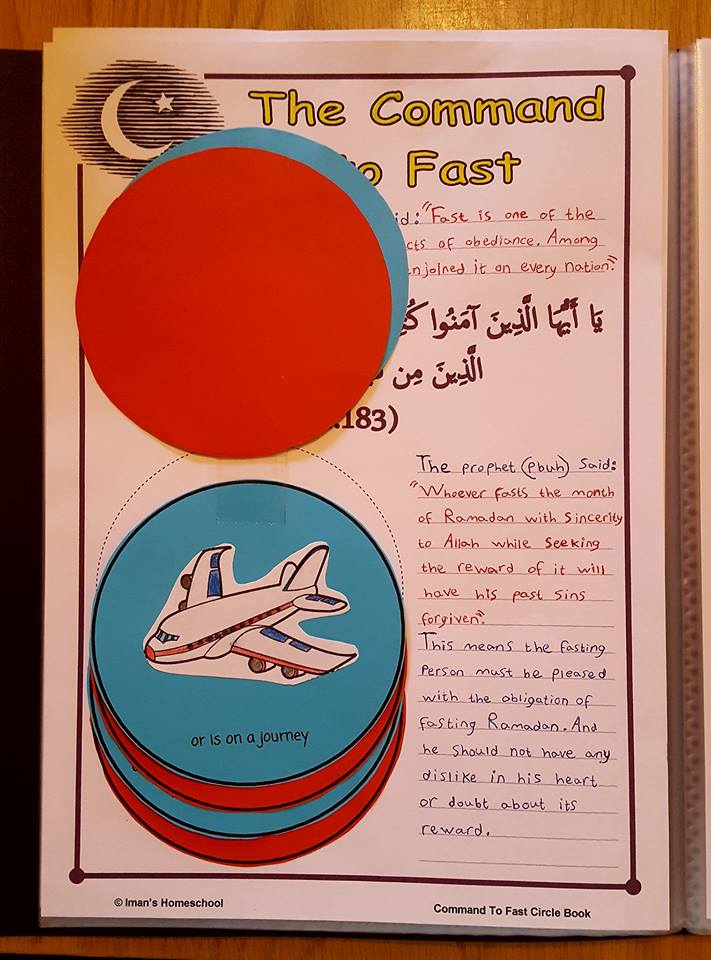 The Command
o Fast
id: "Fast is one of the
cts of obediance. Among
njoined it on every nation."
يَا أَيُّهَا الَّذِينَ آمَنُوا
الَّذِينَ مِن
.183)
The prophet (pbuh) Said:
"Whoever fasts the month
of Ramadan with Sincerity
to Allah while seeking
the reward of it will
have his past sins
forgiven".
This means the fasting
Person must be pleased
with the obligation of
fasting Ramadan. And
he should not have any
dislike in his heart
or doubt about its
reward.
or is on a journey
© Iman's Homeschool
Command To Fast Circle Book